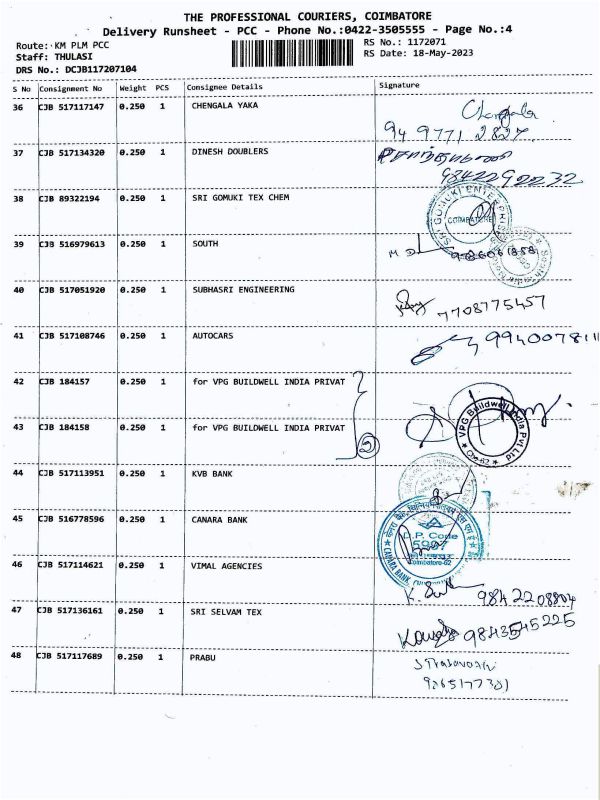 THE PROFESSIONAL COURIERS, COIMBATORE
Delivery Runsheet - PCC - Phone No.:0422-3505555 - Page No.:4
Route: KM PLM PCC
Staff: THULASI
DRS No.: DCJB117207104
RS No.: 1172071
RS Date: 18-May-2023
S No Consignment No Weight PCS Consignee Details Signature
36 CJB 517117147 0.250 1 CHENGALA YAKA
94 9771 2827
37 CJB 517134320 0.250 1 DINESH DOUBLERS
9842292232
38 CJB 89322194 0.250 1 SRI GOMUKI TEX CHEM
SRI GOMUKI ENTERPRISES
COIMBATORE
39 CJB 516979613 0.250 1 SOUTH
40 CJB 517051920 0.250 1 SUBHASRI ENGINEERING
7708775457
41 CJB 517108746 0.250 1 AUTOCARS
9940078111
42 CJB 184157 0.250 1 for VPG BUILDWELL INDIA PRIVAT
43 CJB 184158 0.250 1 for VPG BUILDWELL INDIA PRIVAT
2
VPG Buildwell India Pvt Ltd
Cbe-62
44 CJB 517113951 0.250 1 KVB BANK
45 CJB 516778596 0.250 1 CANARA BANK
D.P. Code
5997
Coimbatore-62
CANARA BANK
46 CJB 517114621 0.250 1 VIMAL AGENCIES
9842208804
47 CJB 517136161 0.250 1 SRI SELVAM TEX
9843545225
48 CJB 517117689 0.250 1 PRABU